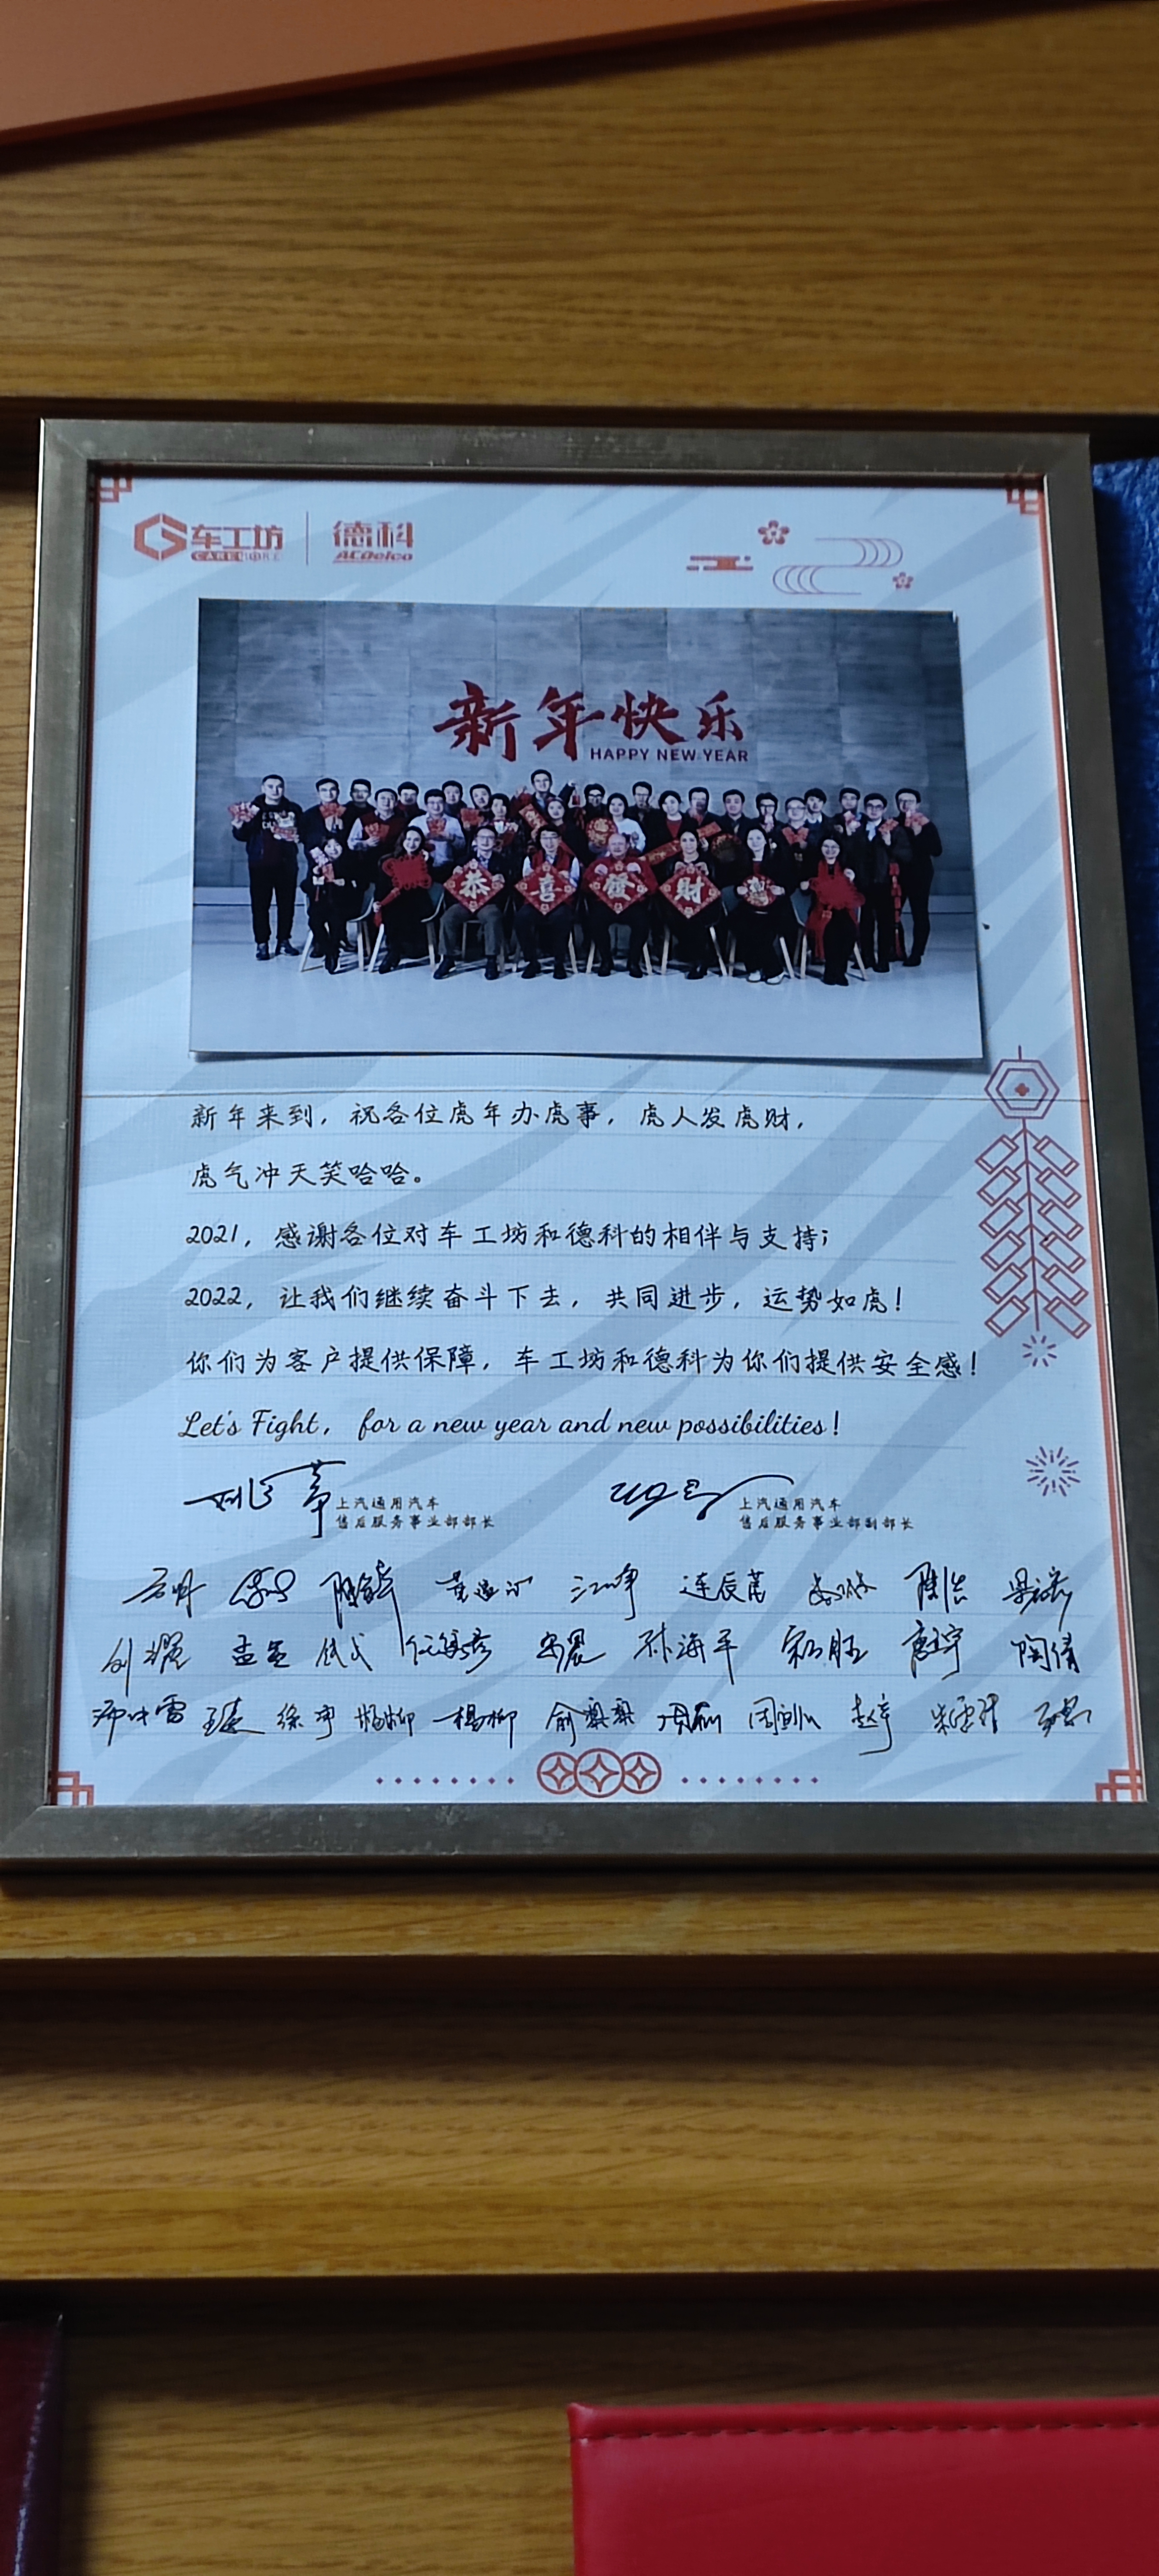 车工坊 德科
CARCORE ACDelco
新年快乐
HAPPY NEW YEAR
恭喜發财
新年来到，祝各位虎年办虎事，虎人发虎财，
虎气冲天笑哈哈。
2021，感谢各位对车工坊和德科的相伴与支持；
2022，让我们继续奋斗下去，共同进步，运势如虎！
你们为客户提供保障，车工坊和德科为你们提供安全感！
Let's Fight, for a new year and new possibilities!
上汽通用汽车 上汽通用汽车
售后服务事业部部长 售后服务事业部副部长
江峥 连辰菡 陈洁
刘耀 孟金 孙海平 陶倩
徐宁 杨柳 杨柳 俞梨梨